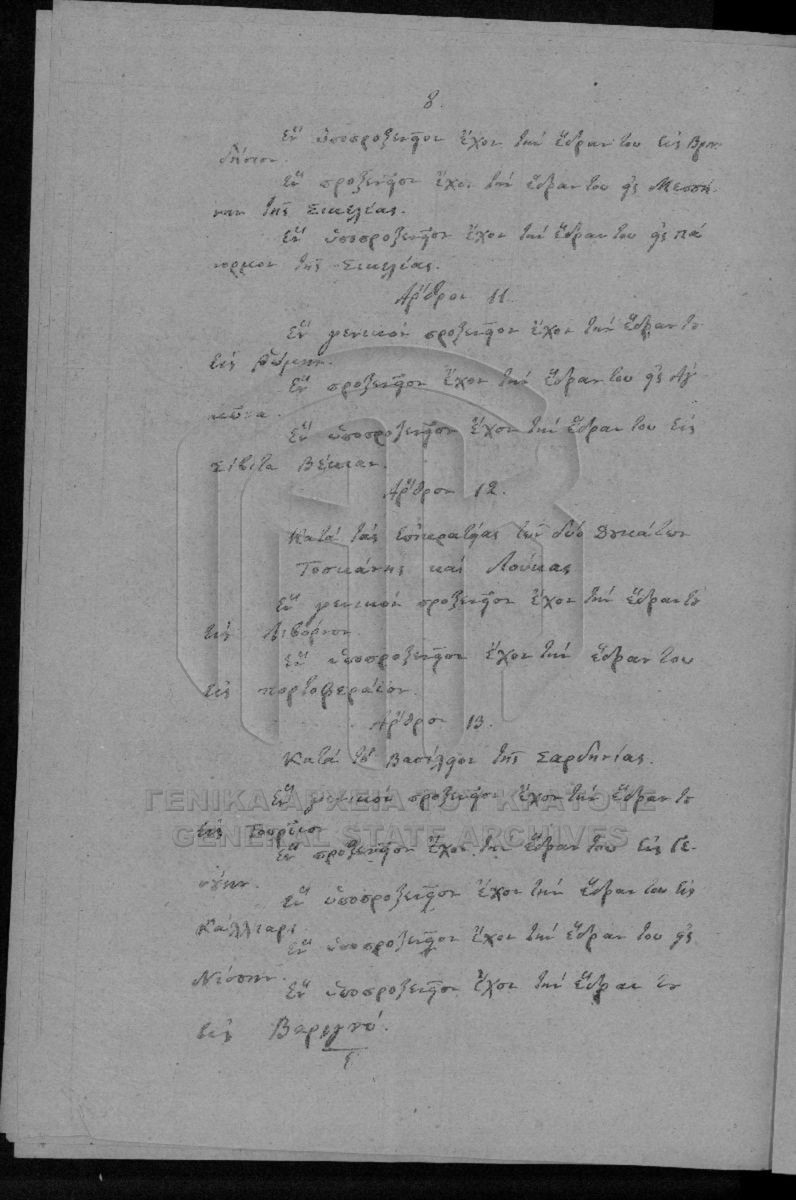 8.
Ἓν ὑποπροξενεῖον ἔχον τὴν ἕδραν του εἰς Βριν-
δήσιον.
Ἓν προξενεῖον ἔχον τὴν ἕδραν του εἰς Μεσσή-
ναν τῆς Σικελίας.
Ἓν ὑποπροξενεῖον ἔχον τὴν ἕδραν του εἰς Πά
νορμον τῆς Σικελίας.
Ἄρθρον 11.
Ἓν γενικὸν προξενεῖον ἔχον τὴν ἕδραν τό
εἰς Ῥώμην.
Ἓν προξενεῖον ἔχον τὴν ἕδραν του εἰς Ἀγ
κῶνα.
Ἓν ὑποπροξενεῖον ἔχον τὴν ἕδραν του εἰς
Σίβιτα Βέκιαν.
Ἄρθρον 12.
Κατὰ τὰς ἐπικρατείας τῶν δύο Δουκάτων
Τοσκάνης καὶ Λούκας
Ἓν γενικὸν προξενεῖον ἔχον τὴν ἕδραν τό
εἰς Λιβόρνον.
Ἓν ὑποπροξενεῖον ἔχον τὴν ἕδραν του
εἰς Πορτοφεράϊον.
Ἄρθρον 13.
Κατὰ τὸ Βασίλειον τῆς Σαρδηνίας.
Ἓν γενικὸν προξενεῖον ἔχον τὴν ἕδραν τό
εἰς Τουρῖνον
Ἓν προξενεῖον ἔχον τὴν ἕδραν του εἰς Γέ-
νουαν.
Ἓν ὑποπροξενεῖον ἔχον τὴν ἕδραν του εἰς
Κάλλιαρι
Ἓν ὑποπροξενεῖον ἔχον τὴν ἕδραν του εἰς
Νίσσαν.
Ἓν ὑποπροξενεῖον ἔχον τὴν ἕδραν του
εἰς
ΓΕΝΙΚΑ ΑΡΧΕΙΑ ΤΟΥ ΚΡΑΤΟΥΣ
GENERAL STATE ARCHIVES